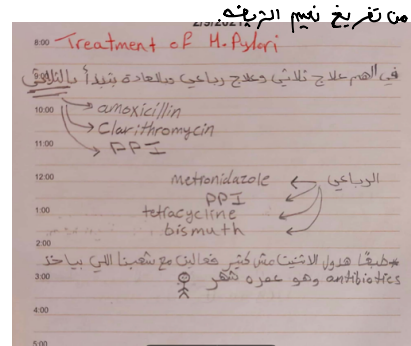 من تفريغ نعيم الزريقي
8:00 Treatment of H.Pylori
في الهم علاج ثلاثي وعلاج رباعي وبالعادة بنبدأ بالثلاثي
10:00 amoxicillin
Clarithromycin
11:00 PPI
12:00 metronidazole الرباعي
PPI
1:00 tetracycline
bismuth
2:00
*طبعًا هدول الاثنين مش كثير فعالين مع شعبنا اللي بياخد
3:00 antibiotics وهو عمره شهر
4:00
5:00